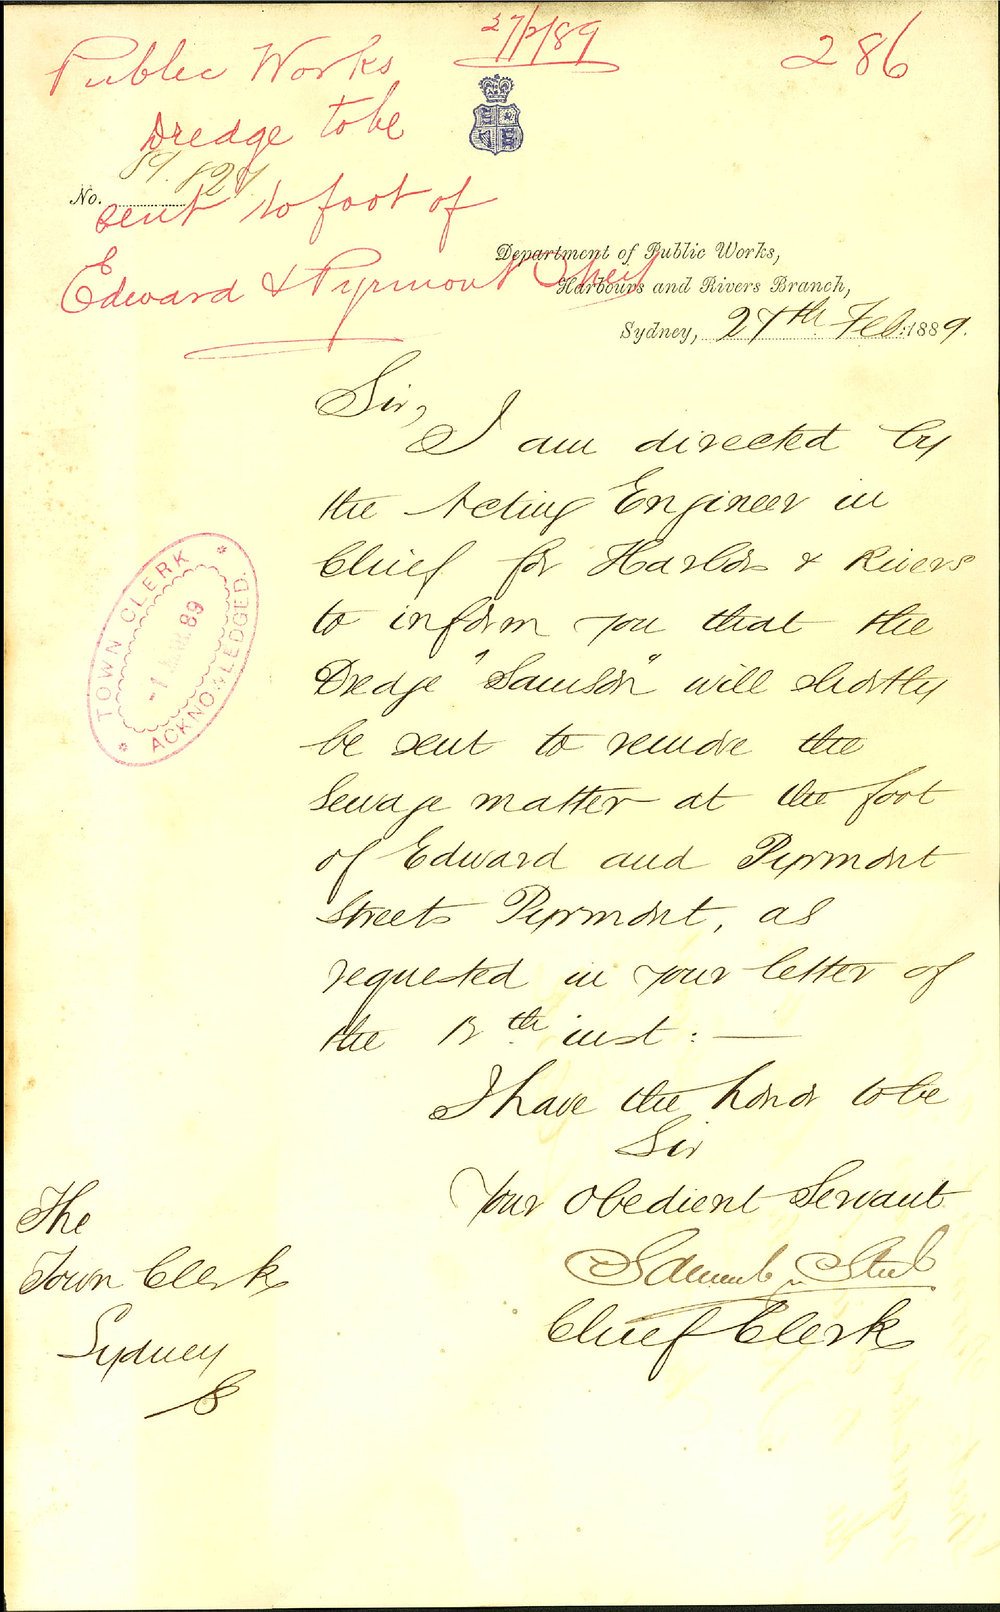 27/2/89
286
Public Works
Dredge to be
No. 89.827
sent to foot of
Edward & Pyrmont
Department of Public Works,
Harbours and Rivers Branch,
Sydney, 27th Feb: 1889.
Sir,
I am directed by
the Acting Engineer in
Chief for Harbors & Rivers
to inform you that the
Dredge "Samson" will shortly
be sent to remove the
Sewage matter at the foot
of Edward and Pyrmont
Streets Pyrmont, as
requested in your letter of
the th inst: —
I have the honor to be
Sir
Your Obedient Servant
Chief Clerk
The
Town Clerk
Sydney
TOWN CLERK
ACKNOWLEDGED.
-1 MAR 89